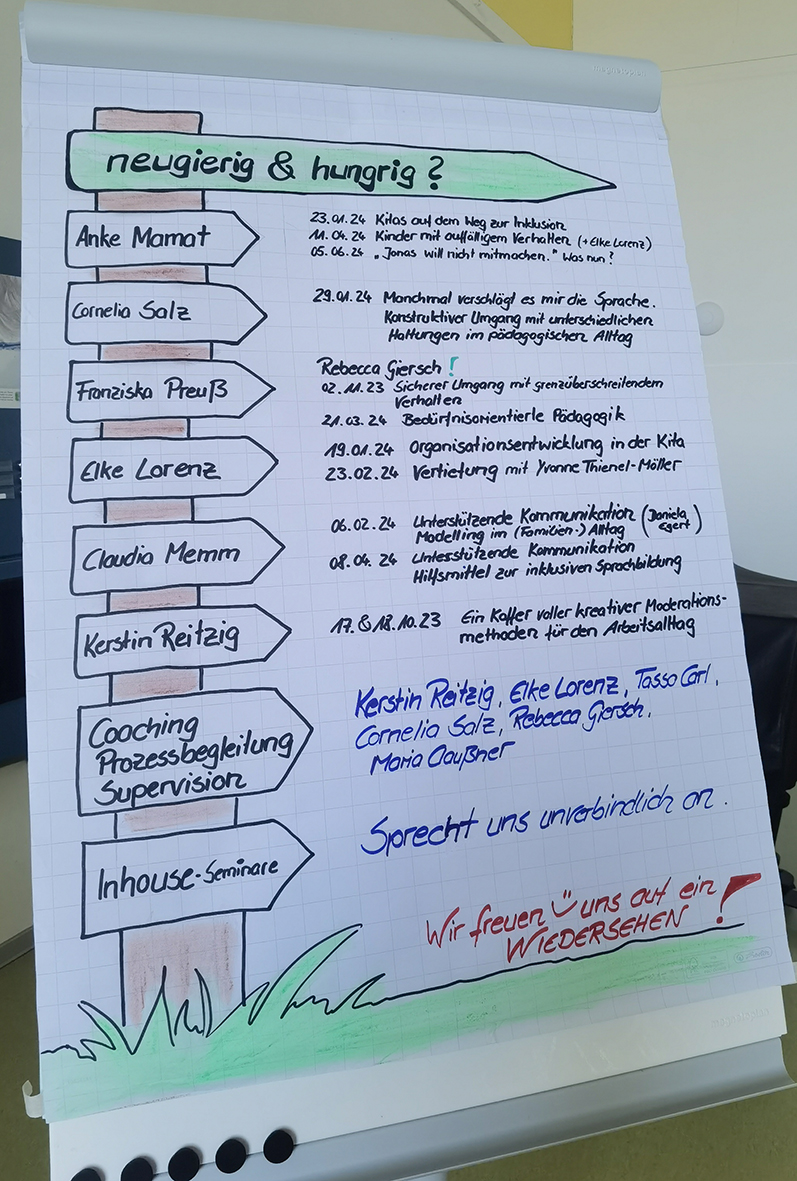 neugierig & hungrig?
Anke Mamat
23.01.24 Kitas auf dem Weg zur Inklusion
11.04.24 Kinder mit auffälligem Verhalten (+Elke Lorenz)
05.06.24 „Jonas will nicht mitmachen." Was nun?
Cornelia Salz
29.01.24 Manchmal verschlägt es mir die Sprache.
Konstruktiver Umgang mit unterschiedlichen
Haltungen im pädagogischen Alltag
Franziska Preuß
Rebecca Giersch!
02.11.23 Sicherer Umgang mit grenzüberschreitendem
Verhalten
21.03.24 Bedürfnisorientierte Pädagogik
Elke Lorenz
19.01.24 Organisationsentwicklung in der Kita
23.02.24 Vertiefung mit Yvonne Thienel-Möller
Claudia Memm
06.02.24 Unterstützende Kommunikation (Daniela
Modelling im (Familien-) Alltag Egert)
08.04.24 Untesstützende Kommunikation
Hilfsmittel zur inklusiven Sprachbildung
Kerstin Reitzig
17.&18.10.23 Ein Koffer voller kreativer Moderations-
methoden für den Arbeitsalltag
Coaching
Prozessbegleitung
Supervision
Kerstin Reitzig, Elke Lorenz, Tasso Carl,
Cornelia Salz, Rebecca Giersch,
Maria Claußner
Inhouse-Seminare
Sprecht uns unverbindlich an.
Wir freuen uns auf ein
WIEDERSEHEN!